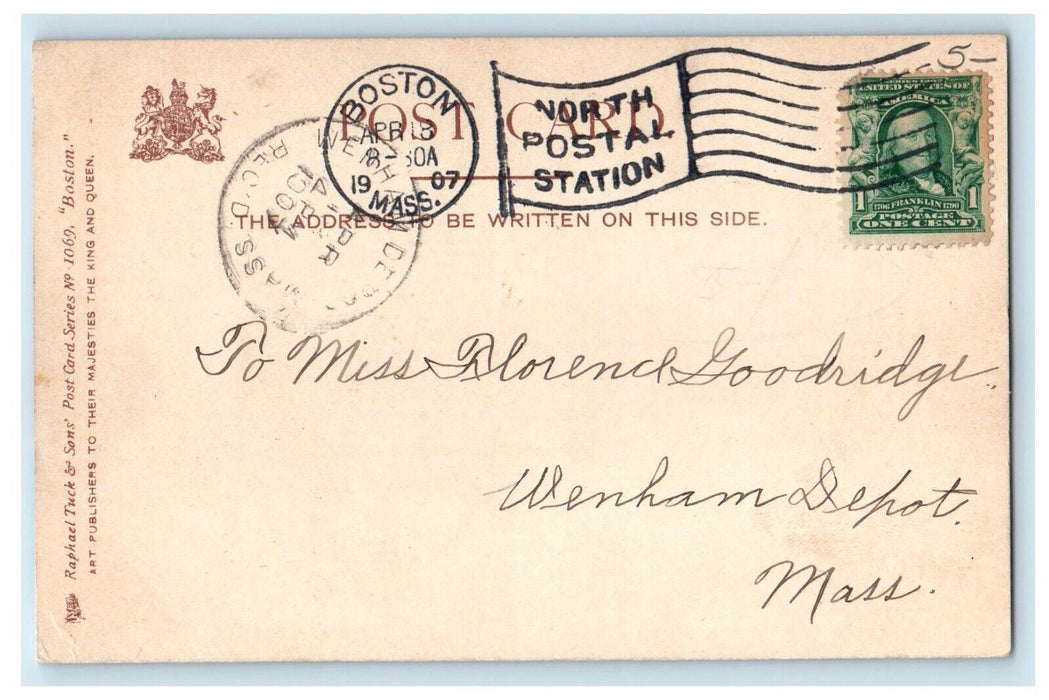 Raphael Tuck & Sons' Post Card Series No 1069, "Boston."
ART PUBLISHERS TO THEIR MAJESTIES THE KING AND QUEEN.
POST CARD
THE ADDRESS TO BE WRITTEN ON THIS SIDE.
BOSTON
APR 13
8-30A
19 07
MASS.
NORTH
POSTAL
STATION
WENHAM DEPOT
MASS
REC'D.
APR
-5-
SERIES 1902
UNITED STATES OF
AMERICA
1 1706 FRANKLIN 1790 1
POSTAGE
ONE CENT
To Miss Florence Goodridge.
Wenham Depot.
Mass.